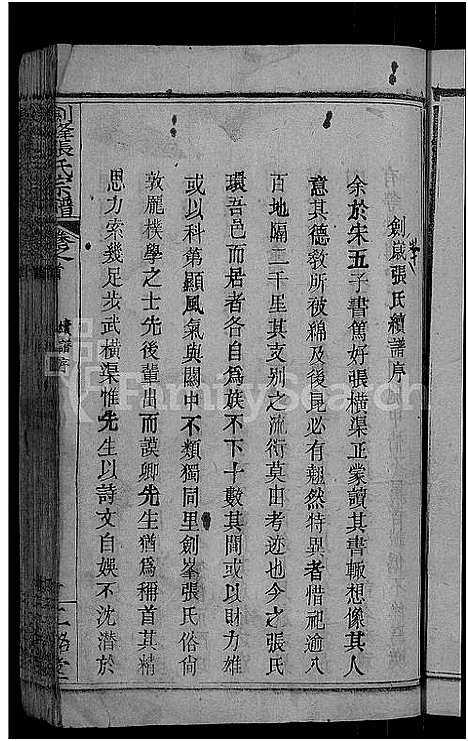 劍峯張氏續譜序
余於宋五子書篤好張橫渠正蒙讀其書輙想像其人
意其德敎所被綿及後昆必有翹然特異者惜祀逾八
百地隔二千里其支别之流衍莫由考迹也今之張氏
環吾邑而居者各自爲族不下十數其間或以財力雄
或以科第顯風氣與關中不類獨同里劍峯張氏俗尙
敦龐樸學之士先後輩出而謨卿先生猶爲稱首其精
思力索幾足步武橫渠惟先生以詩文自娛不沈潛於
劍峯張氏宗譜
卷之首
續譜序
FamilySearch